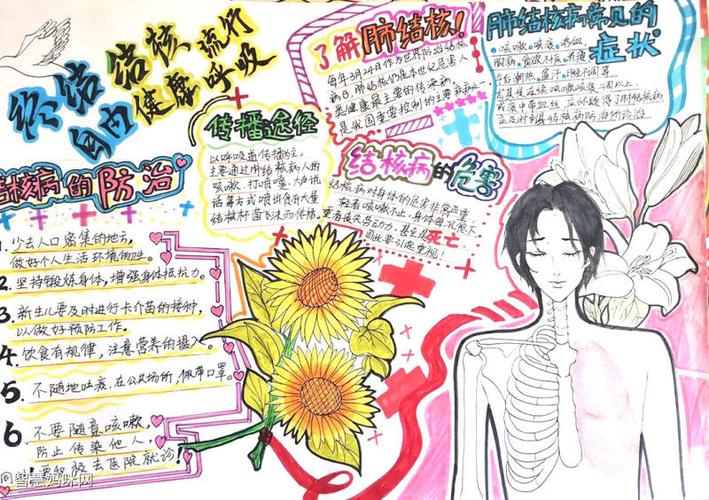 终结结核流行
自由健康呼吸
了解肺结核!
每年3月24日作为世界防治结核
病日肺结核仍是本世纪危害人
类健康最主要的传染病,
是我国重点控制的主要
肺结核病常见的
症状
咳嗽·咳痰·咯血,
胸痛,食欲不振
午后潮热,盗汗
尤其是连续咳嗽咳痰2周以上
或痰中带血丝,应怀疑得了肺结核病
应及时到县结核病防治所诊治
传播途径
以呼吸道传播为主,
主要通过肺结核病人的
咳嗽、打喷嚏、大声说
话等方式喷出含有大量
结核杆菌
结核病的危害
结核病对身体的危害非常严重
轻者咳嗽不止,身体
重者丧失劳动力,甚至是死亡
因此要引起重视!
结核病的防治
1.少去人口密集的地方,
做好个人生活环境的卫生。
2.坚持锻炼身体,增强身体抵抗力。
3.新生儿要及时进行卡介苗的接种,
以做好预防工作。
4.饮食有规律,注意营养的摄入。
5.不随地吐痰,在公共场所,佩带口罩。
6.不要随意咳嗽,
防止传染他人,
要积极去医院就诊!
@智慧妈咪网